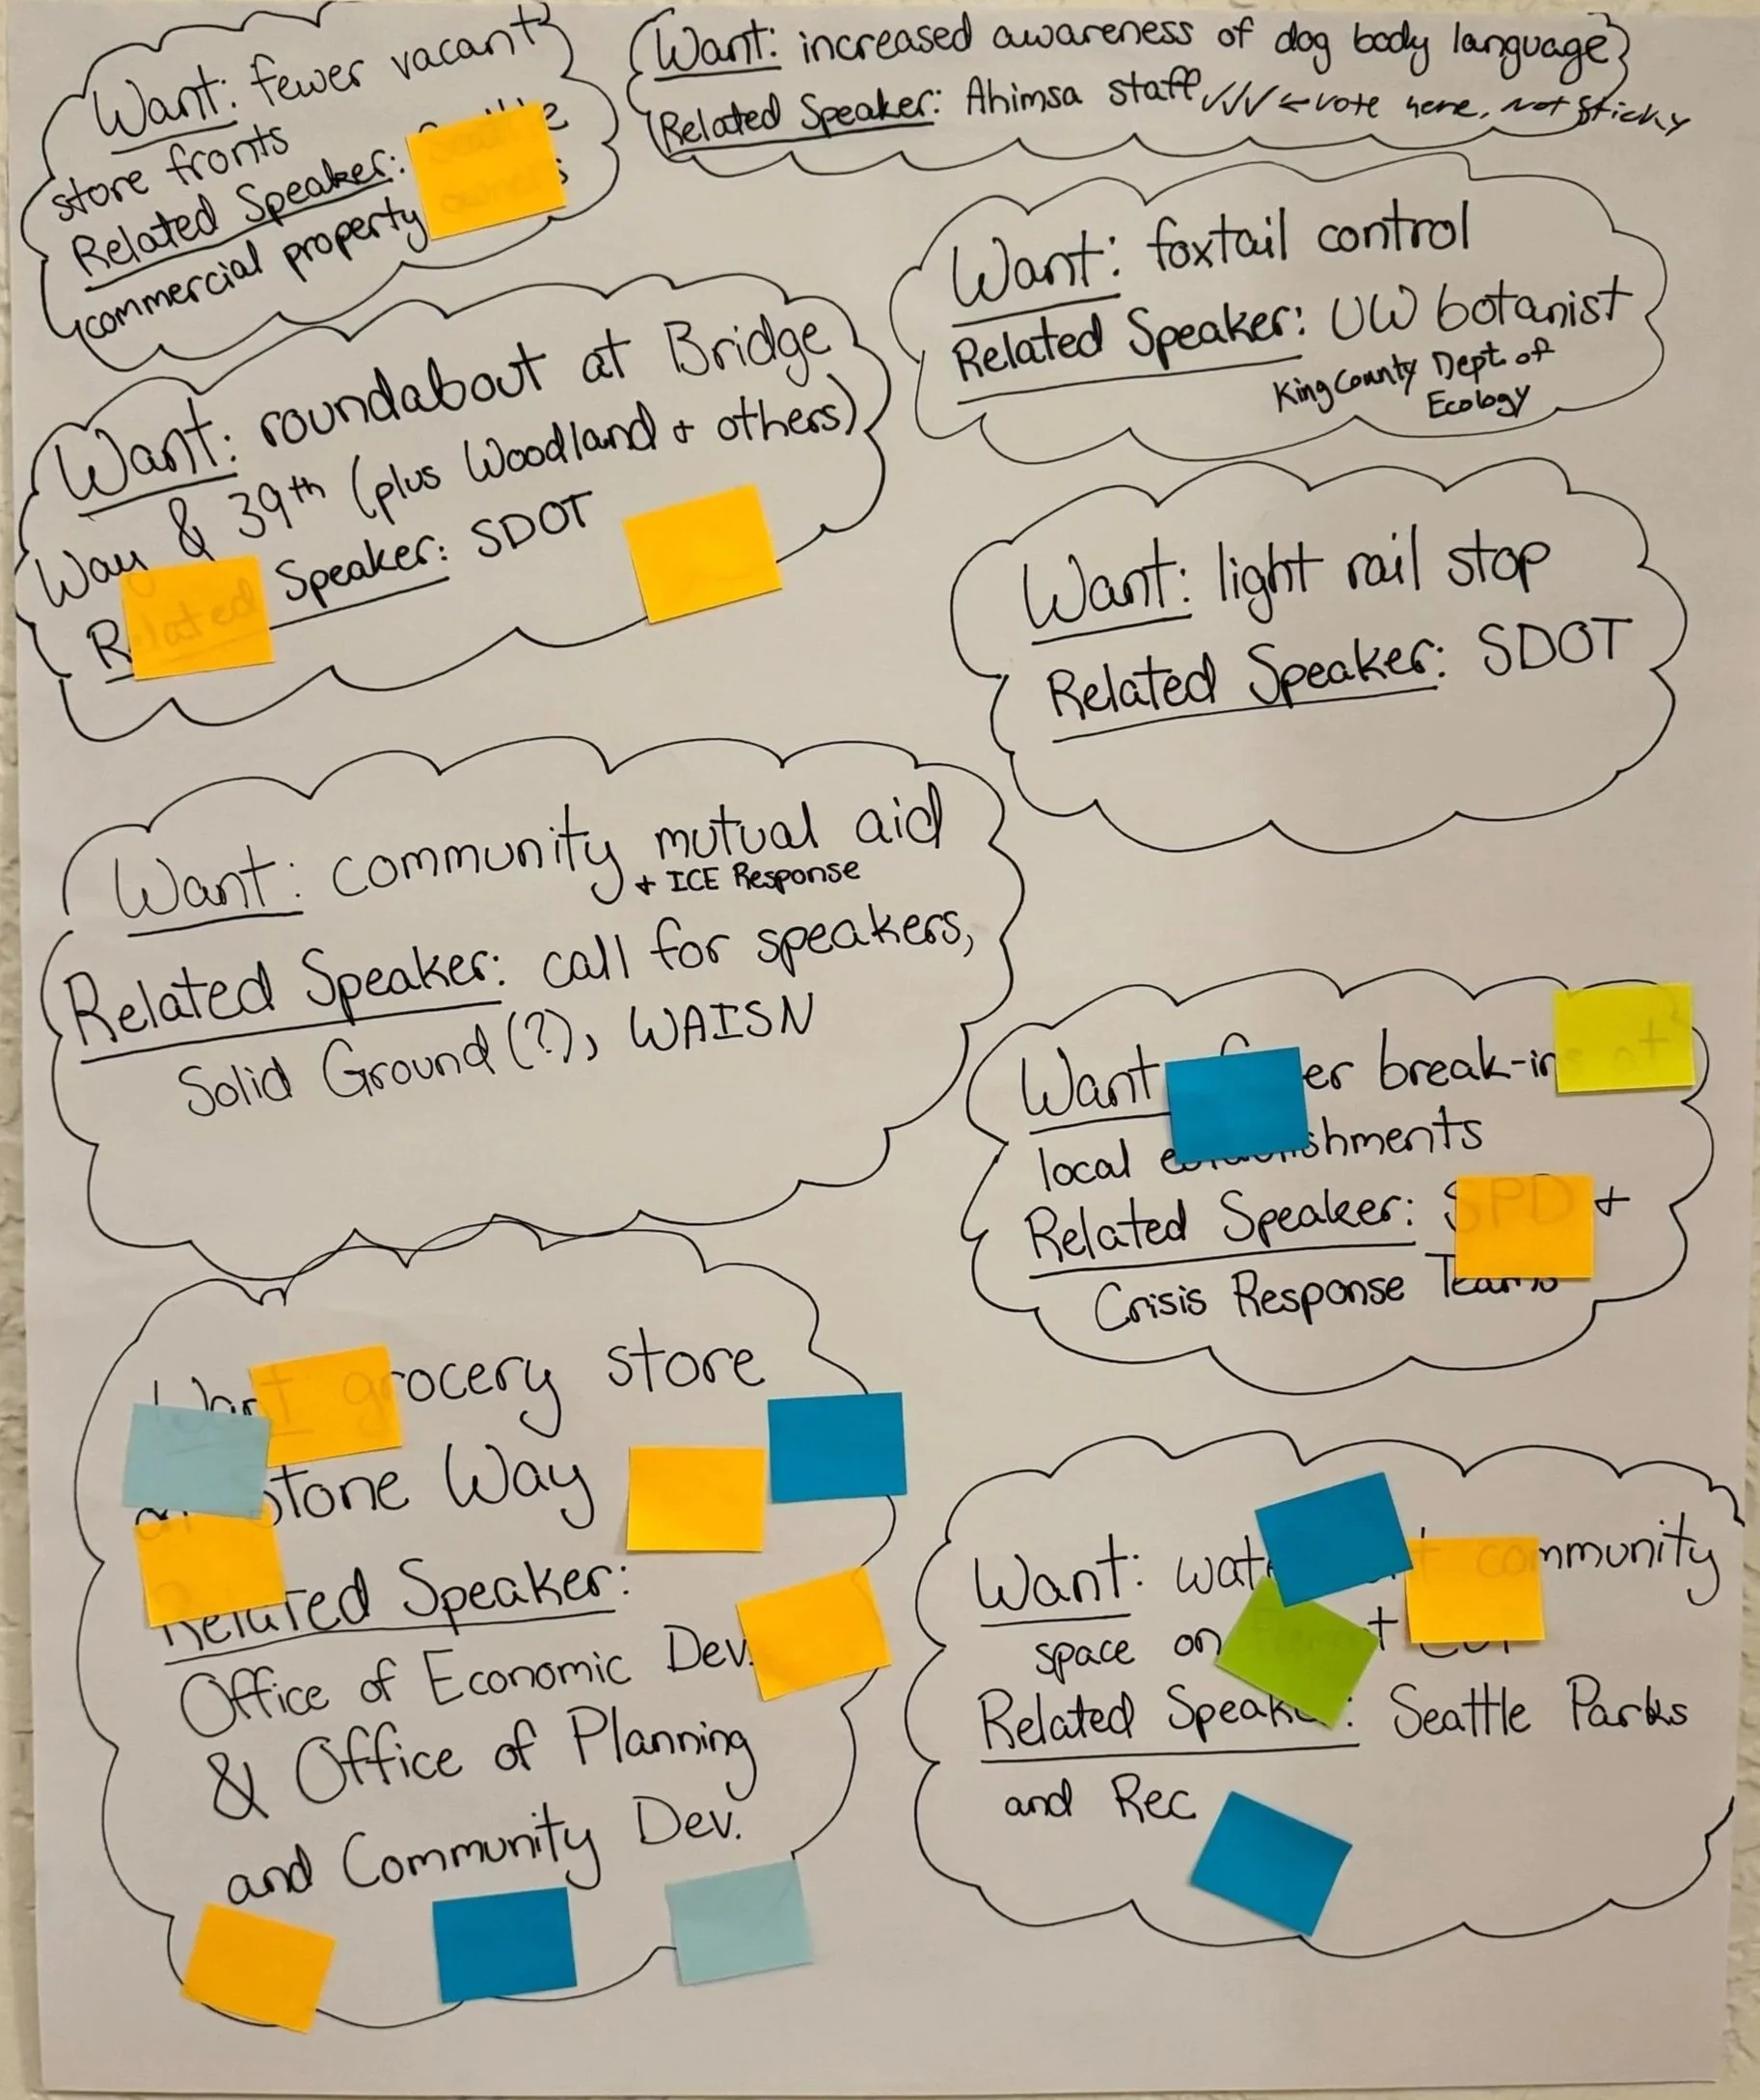 Want: fewer vacant
store fronts
Related Speaker: Seattle
commercial property owners
Want: increased awareness of dog body language
Related Speaker: Ahimsa staff ✓✓✓ ← vote here, not sticky
Want: foxtail control
Related Speaker: UW botanist
King County Dept. of
Ecology
Want: roundabout at Bridge
Way & 39th (plus Woodland + others)
Related Speaker: SDOT
Want: light rail stop
Related Speaker: SDOT
Want: community mutual aid
+ ICE Response
Related Speaker: call for speakers,
Solid Ground (?), WAISN
Want er break-ins at
local shments
Related Speaker: SPD +
Crisis Response Teams
Want grocery store
on Stone Way
Related Speaker:
Office of Economic Dev.
& Office of Planning
and Community Dev.
Want: community
space on
Related Speaker: Seattle Parks
and Rec